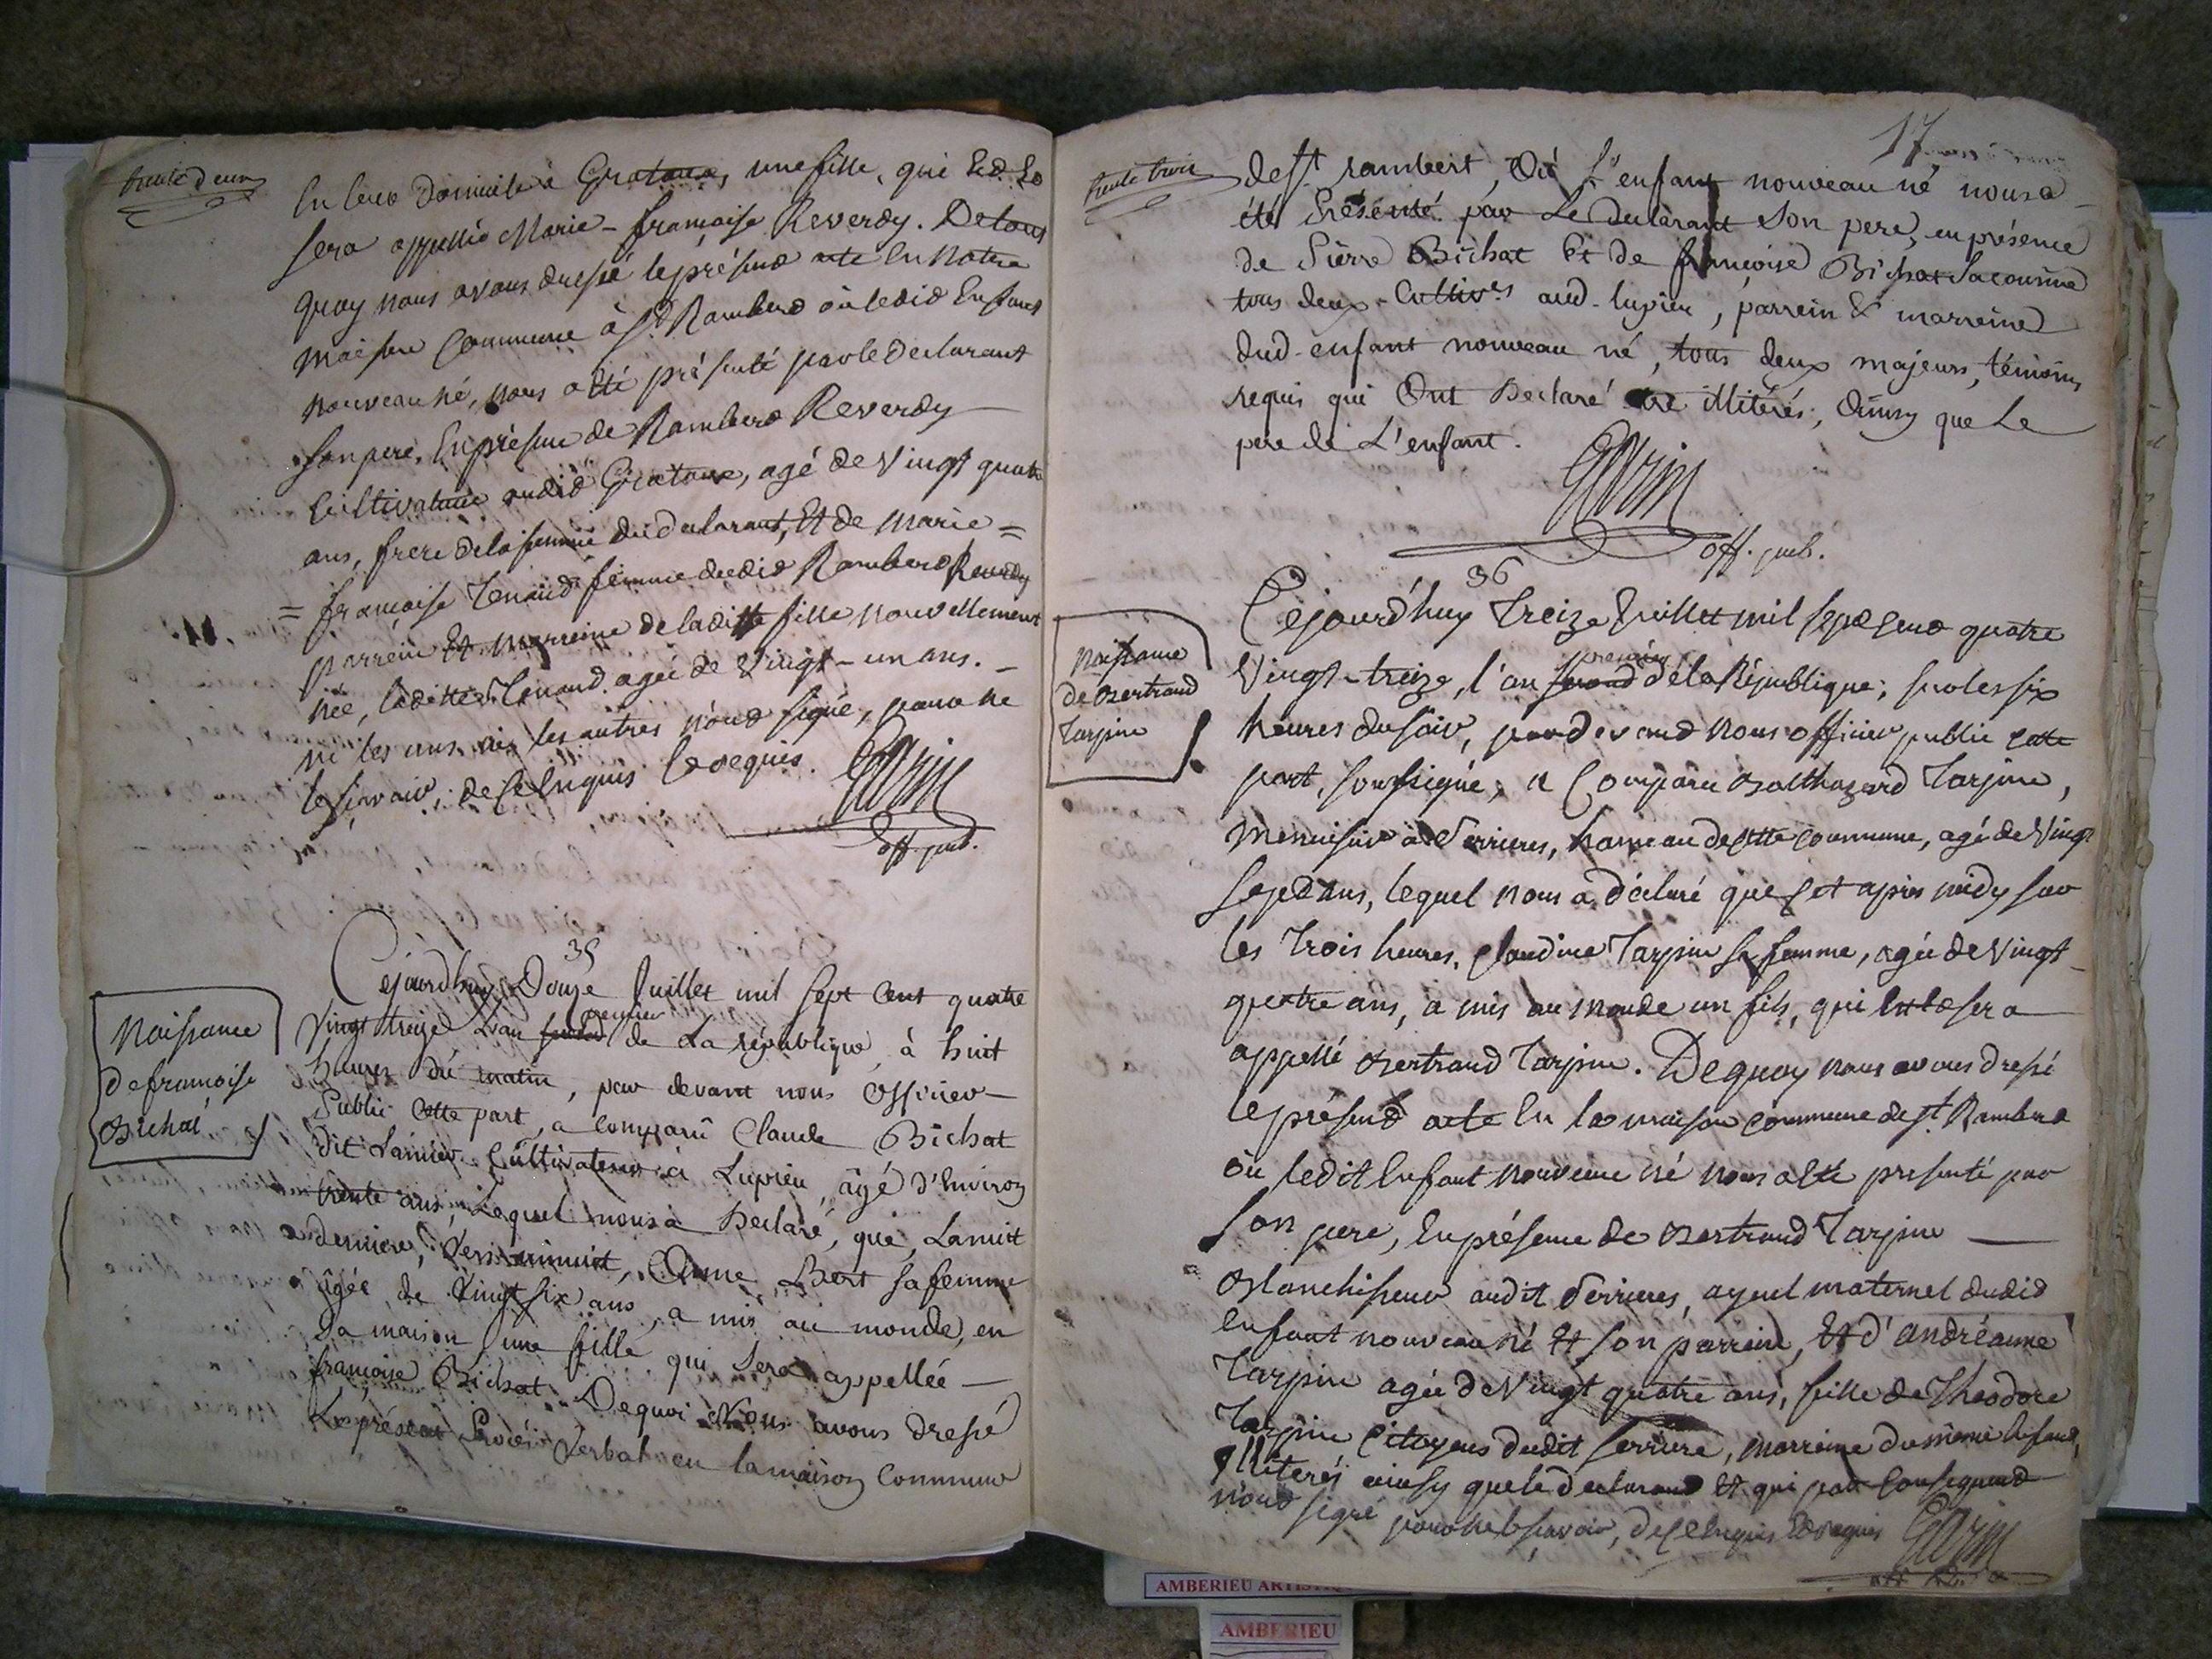 trente deux
En leur Domicile à Grataux, une fille, qui Est Et
sera appellée Marie-françoise Reverdy. De tout
quoy nous avons dressé le présent acte En Notre
maison Commune à St Rambert où ledit Enfant
nouveau né, nous a été présenté par le declarant
son pere, En présence de Rambert Reverdy
Cultivateur audit Grataux, agé de Vingt quatre
ans, frere de la femme du declarant, Et de marie=
=françoise Tenand femme dudit Rambert Reverdy
parrein Et marreine de laditte fille nouvellement
née, laditte Tenand agée de Vingt-un ans.
ni les uns ni les autres n'ont signé, pour ne
le sçavoir de ce Enquis Et requis. Garin
off. pub.
35
Naissance
de françoise
Bichat
Cejourd'huy Douze Juillet mil sept Cent quatre
Vingt treize L'an second premier de La république, à huit
heures du matin, par devant nous Officier
Public cette part, a comparu Claude Bichat
dit Larnier Cultivateur à Lupieu, âgé d'Environ
trente ans, Lequel nous a Declaré, que, La nuit
derniere, Vers minuit, Anne Bert sa femme
âgée de Vingt six ans, a mis au monde, en
sa maison une fille qui sera appellée
françoise Bichat. De quoi Nous avons dressé
Le présent Procès-Verbal en la maison Commune
17
trente trois
de St rambert, Où L'enfant nouveau né nous a
été Présenté par Le Declarant son pere, en présence
de Pierre Bichat Et de françoise Bichat sa cousine
tous deux Cultivrs aud. lupieu, parrein & marreine
dud. enfant nouveau né, tous deux majeurs, témoins
requis qui Ont Declaré être illitérés, Ainsy que Le
pere de L'enfant.
Garin
off. pub.
36
naissance
de Bertrand
Tarpin
Cejourd'huy Treize Juillet mil sept cent quatre
Vingt-treize, l'an second premier de la République, sur les six
heures du soir, pardevant nous officier public cette
part, soussigné, a Comparu Balthazard Tarpin,
menuisier à Serrieres, hameau de cette commune, agé de Vingt
sept ans, lequel nous a déclaré que cet après midy sur
les Trois heures, Claudine Tarpin sa femme, agée de Vingt
quatre ans, a mis au monde un fils, qui Est & sera
appellé Bertrand Tarpin. De quoy nous avons dressé
le présent acte En la maison commune de St. Rambert
où ledit Enfant nouveau né nous a été présenté par
son pere, En présence de Bertrand Tarpin
Blanchisseur audit Serrieres, ayeul maternel dudit
Enfant nouveau né Et son parrein, Et d'andréanne
Tarpin agée de Vingt quatre ans, fille de Théodore
Tarpin Citoyens dudit Serriere, marreine du même Enfant,
Illiterés ainsy que le declarant Et qui par Consequent
n'ont signé pour ne le sçavoir, de ce Enquis Et requis Garin
AMBERIEU